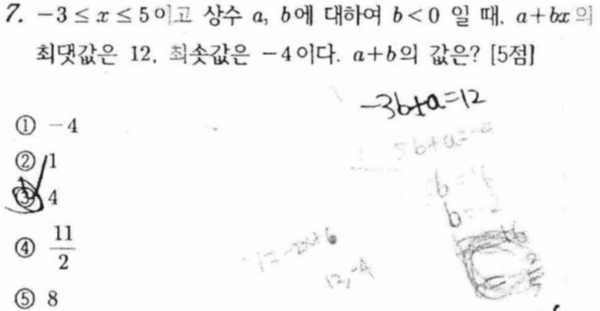 7. -3 ≤ x ≤ 5이고 상수 a, b에 대하여 b < 0 일 때, a+bx의
최댓값은 12, 최솟값은 -4이다. a+b의 값은? [5점]
-3b+a=12
① -4
5b+a=-4
② 1
③ 4
b=-2
④ 11/2
12, -4
⑤ 8